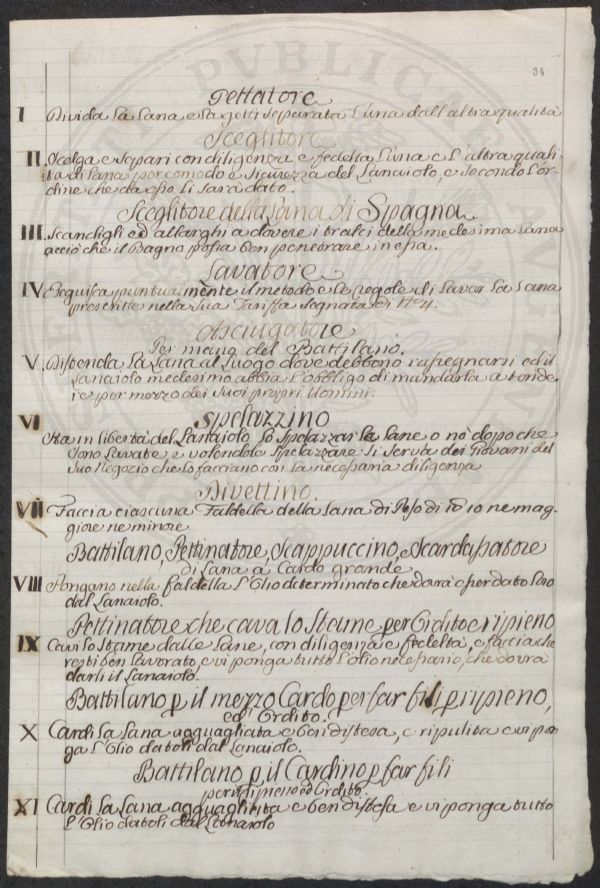 34
Pettatore
I Divida la Lana e la getti separata l'una dall'altra qualità
Sceglitore
II Scelga e separi con diligenza e fedeltà l'una e l'altra quali-
tà di Lana per comodo e sicurezza del Lanaiolo, e secondo l'or-
dine che da esso li sarà dato.
Sceglitore della Lana di Spagna
III Scandigli ed allarghi a dovere i tralci della medesima Lana
acciò che il Bagno possa ben penetrare in essa.
Lavatore
IV Eseguisca puntualmente il metodo e le regole di Lavar la Lana
prescritte nella sua Tariffa segnata di N.° 4.
Asciugatore
Per mano del Battilano.
V Distenda la Lana al Luogo dove debbono rassegnarsi ed il
Lanaiolo medesimo abbia l'obbligo di mandarla a tende-
re per mezzo dei suoi propri Uomini.
Spelazzino
VI Sia in libertà del Lanaiolo lo Spelazzar le Lane o nò dopo che
sono Lavate e volendole Spelazzare si serva dei Giovani del
suo Negozio che lo facciano con la necessaria diligenza
Divettino.
VII Faccia ciascuna Faldella della Lana di Peso di 10 ne mag-
giore ne minore
Battilano, Pettinatore, Scappuccino, e Scardassatore
di Lana a Cardo grande
VIII Pongano nella faldella l'Olio determinato che dovrà esser dato loro
dal Lanaiolo.
Pettinatore che cava lo Stame per Ordito e ripieno
IX Cavi lo Stame dalle Lane, con diligenza e fedeltà, e faccia che
resti ben lavorato, e vi ponga tutto l'olio necessario, che dovrà
darli il Lanaiolo.
Battilano p il mezzo Cardo per far fili p ripieno,
ed Ordito.
X Cardi la Lana agguagliata e ben distesa, e ripulita e vi pon-
ga l'Olio datoli dal Lanaiolo.
Battilano p il Cardino p far fili
per ripieno ed Ordito.
XI Cardi la Lana agguagliata e ben distesa e vi ponga tutto
l'Olio datoli dal Lanaiolo